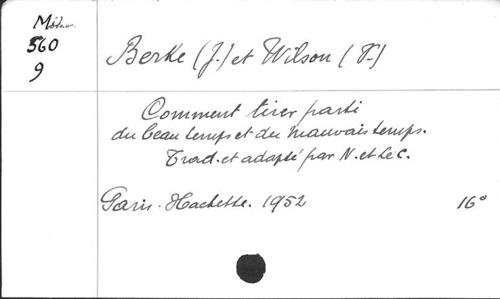 560
9
Berke (J.) et Wilson (V.)
Comment tirer parti
du beau temps et du mauvais temps.
Trad. et adapté par N. et Le C.
Paris. Hachette. 1952 16°